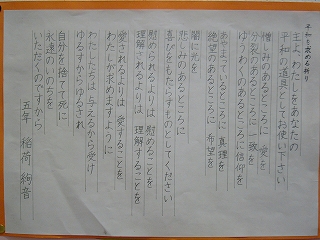 平和を求める祈り
主よ わたしをあなたの
平和の道具としてお使い下さい
憎しみのあるところに 愛を
分裂のあるところに 一致を
ゆうわくのあるところに 信仰を
あやまっているところに 真理を
絶望のあるところに 希望を
闇に光を
悲しみのあるところに
喜びをもたらすものとしてください
慰められるよりは 慰めることを
理解されるよりは 理解することを
愛されるよりは 愛することを
わたしが求めますように
わたしたちは 与えるから受け
ゆるすからゆるされ
自分を捨てて死に
永遠のいのちを
いただくのですから
五年 稲荷 絢音